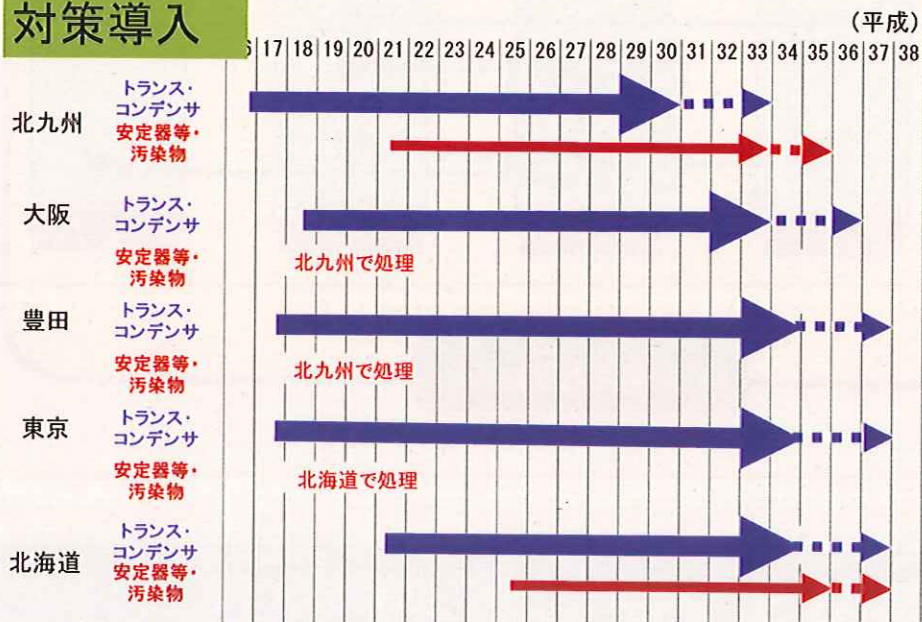 対策導入
(平成)
6 17 18 19 20 21 22 23 24 25 26 27 28 29 30 31 32 33 34 35 36 37 38
北九州
トランス・
コンデンサ
安定器等・
汚染物
大阪
トランス・
コンデンサ
安定器等・
汚染物
北九州で処理
豊田
トランス・
コンデンサ
安定器等・
汚染物
北九州で処理
東京
トランス・
コンデンサ
安定器等・
汚染物
北海道で処理
北海道
トランス・
コンデンサ
安定器等・
汚染物